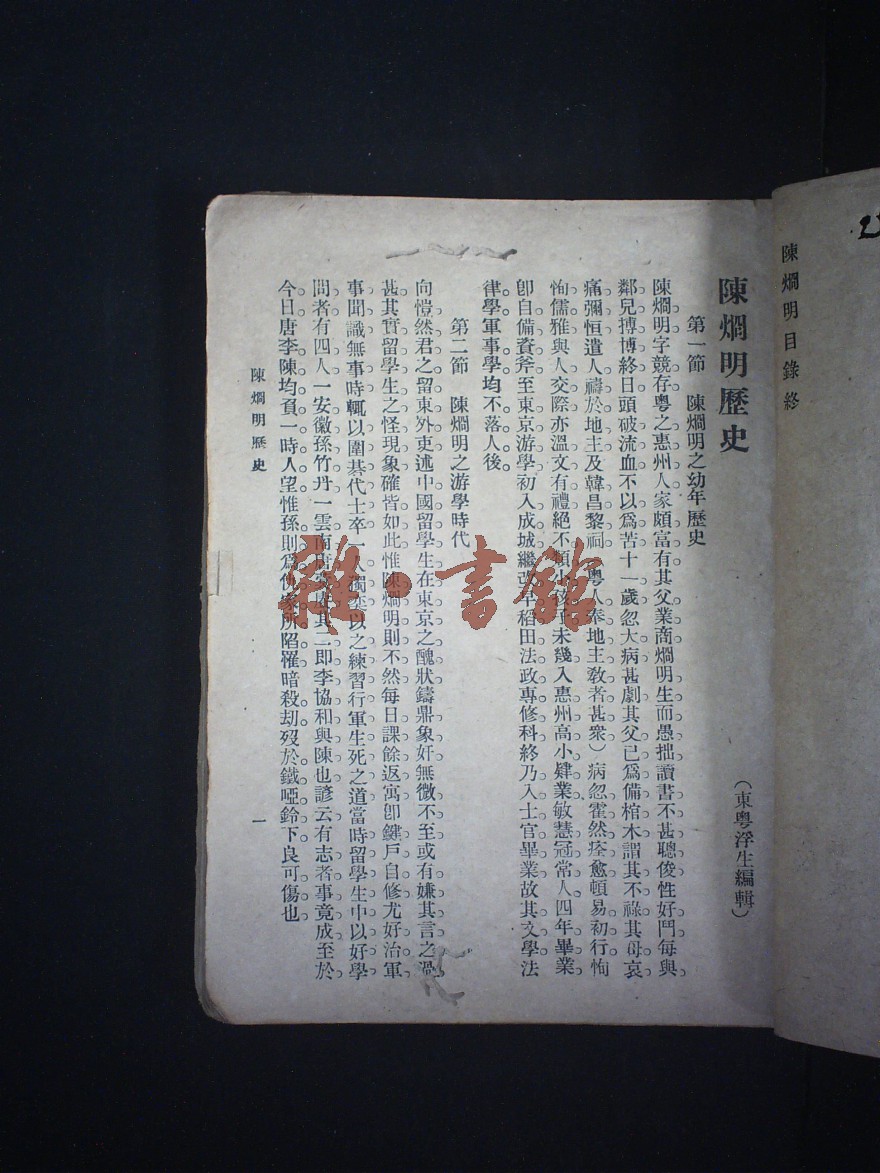 陳烱明目錄終
陳烱明歷史
(東粤浮生編輯)
第一節　陳烱明之幼年歷史
陳烱明字競存粤之惠州人家頗富有其父業商烱明生而愚拙讀書不甚聰俊性好鬥每與
鄰兒搏博終日頭破流血不以爲苦十一歲忽大病甚劇其父已爲備棺木謂其不祿其母哀
痛彌恒遣人禱於地主及韓昌黎祠粤人奉地主敎者甚衆)病忽霍然痊愈頓易初行恂
恂儒雅與人交際亦溫文有禮絕不類孩子未幾入惠州高小肄業敏慧冠常人四年畢業
卽自備資斧至東京游學初入成城繼改早稻田法政專修科終乃入士官畢業故其文學法
律學軍事學均不落人後。
第二節　陳烱明之游學時代
向愷然君之留東外史述中國留學生在東京之醜狀鑄鼎象奸無微不至或有嫌其言之過
甚其實留學生之怪現象確皆如此惟陳烱明則不然每日課餘返寓卽鍵戶自修尤好治軍
事聞識無事時輒以圍棊代士卒一人獨奕以之練習行軍生死之道當時留學生中以好學
問者有四人一安徽孫竹丹一雲南唐其二卽李協和與陳也諺云有志者事竟成至於
今日唐李陳均負一時人望惟孫則爲仇家所陷罹暗殺刧歿於鐵啞鈴下良可傷也
陳烱明歷史
一
雜·書館